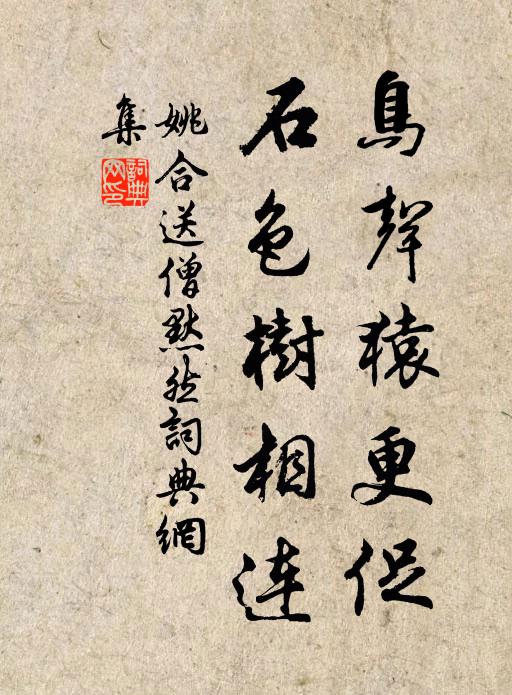 鳥聲猿更促
石色樹相連
姚合送僧默然詞典網
集
詞典
网印